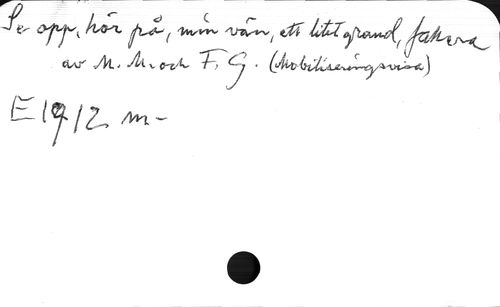 Se opp, hör på, min vän, ett litet grand,
av M. M. och F. G. (Mobiliseringsvisa)
E 1912 m-